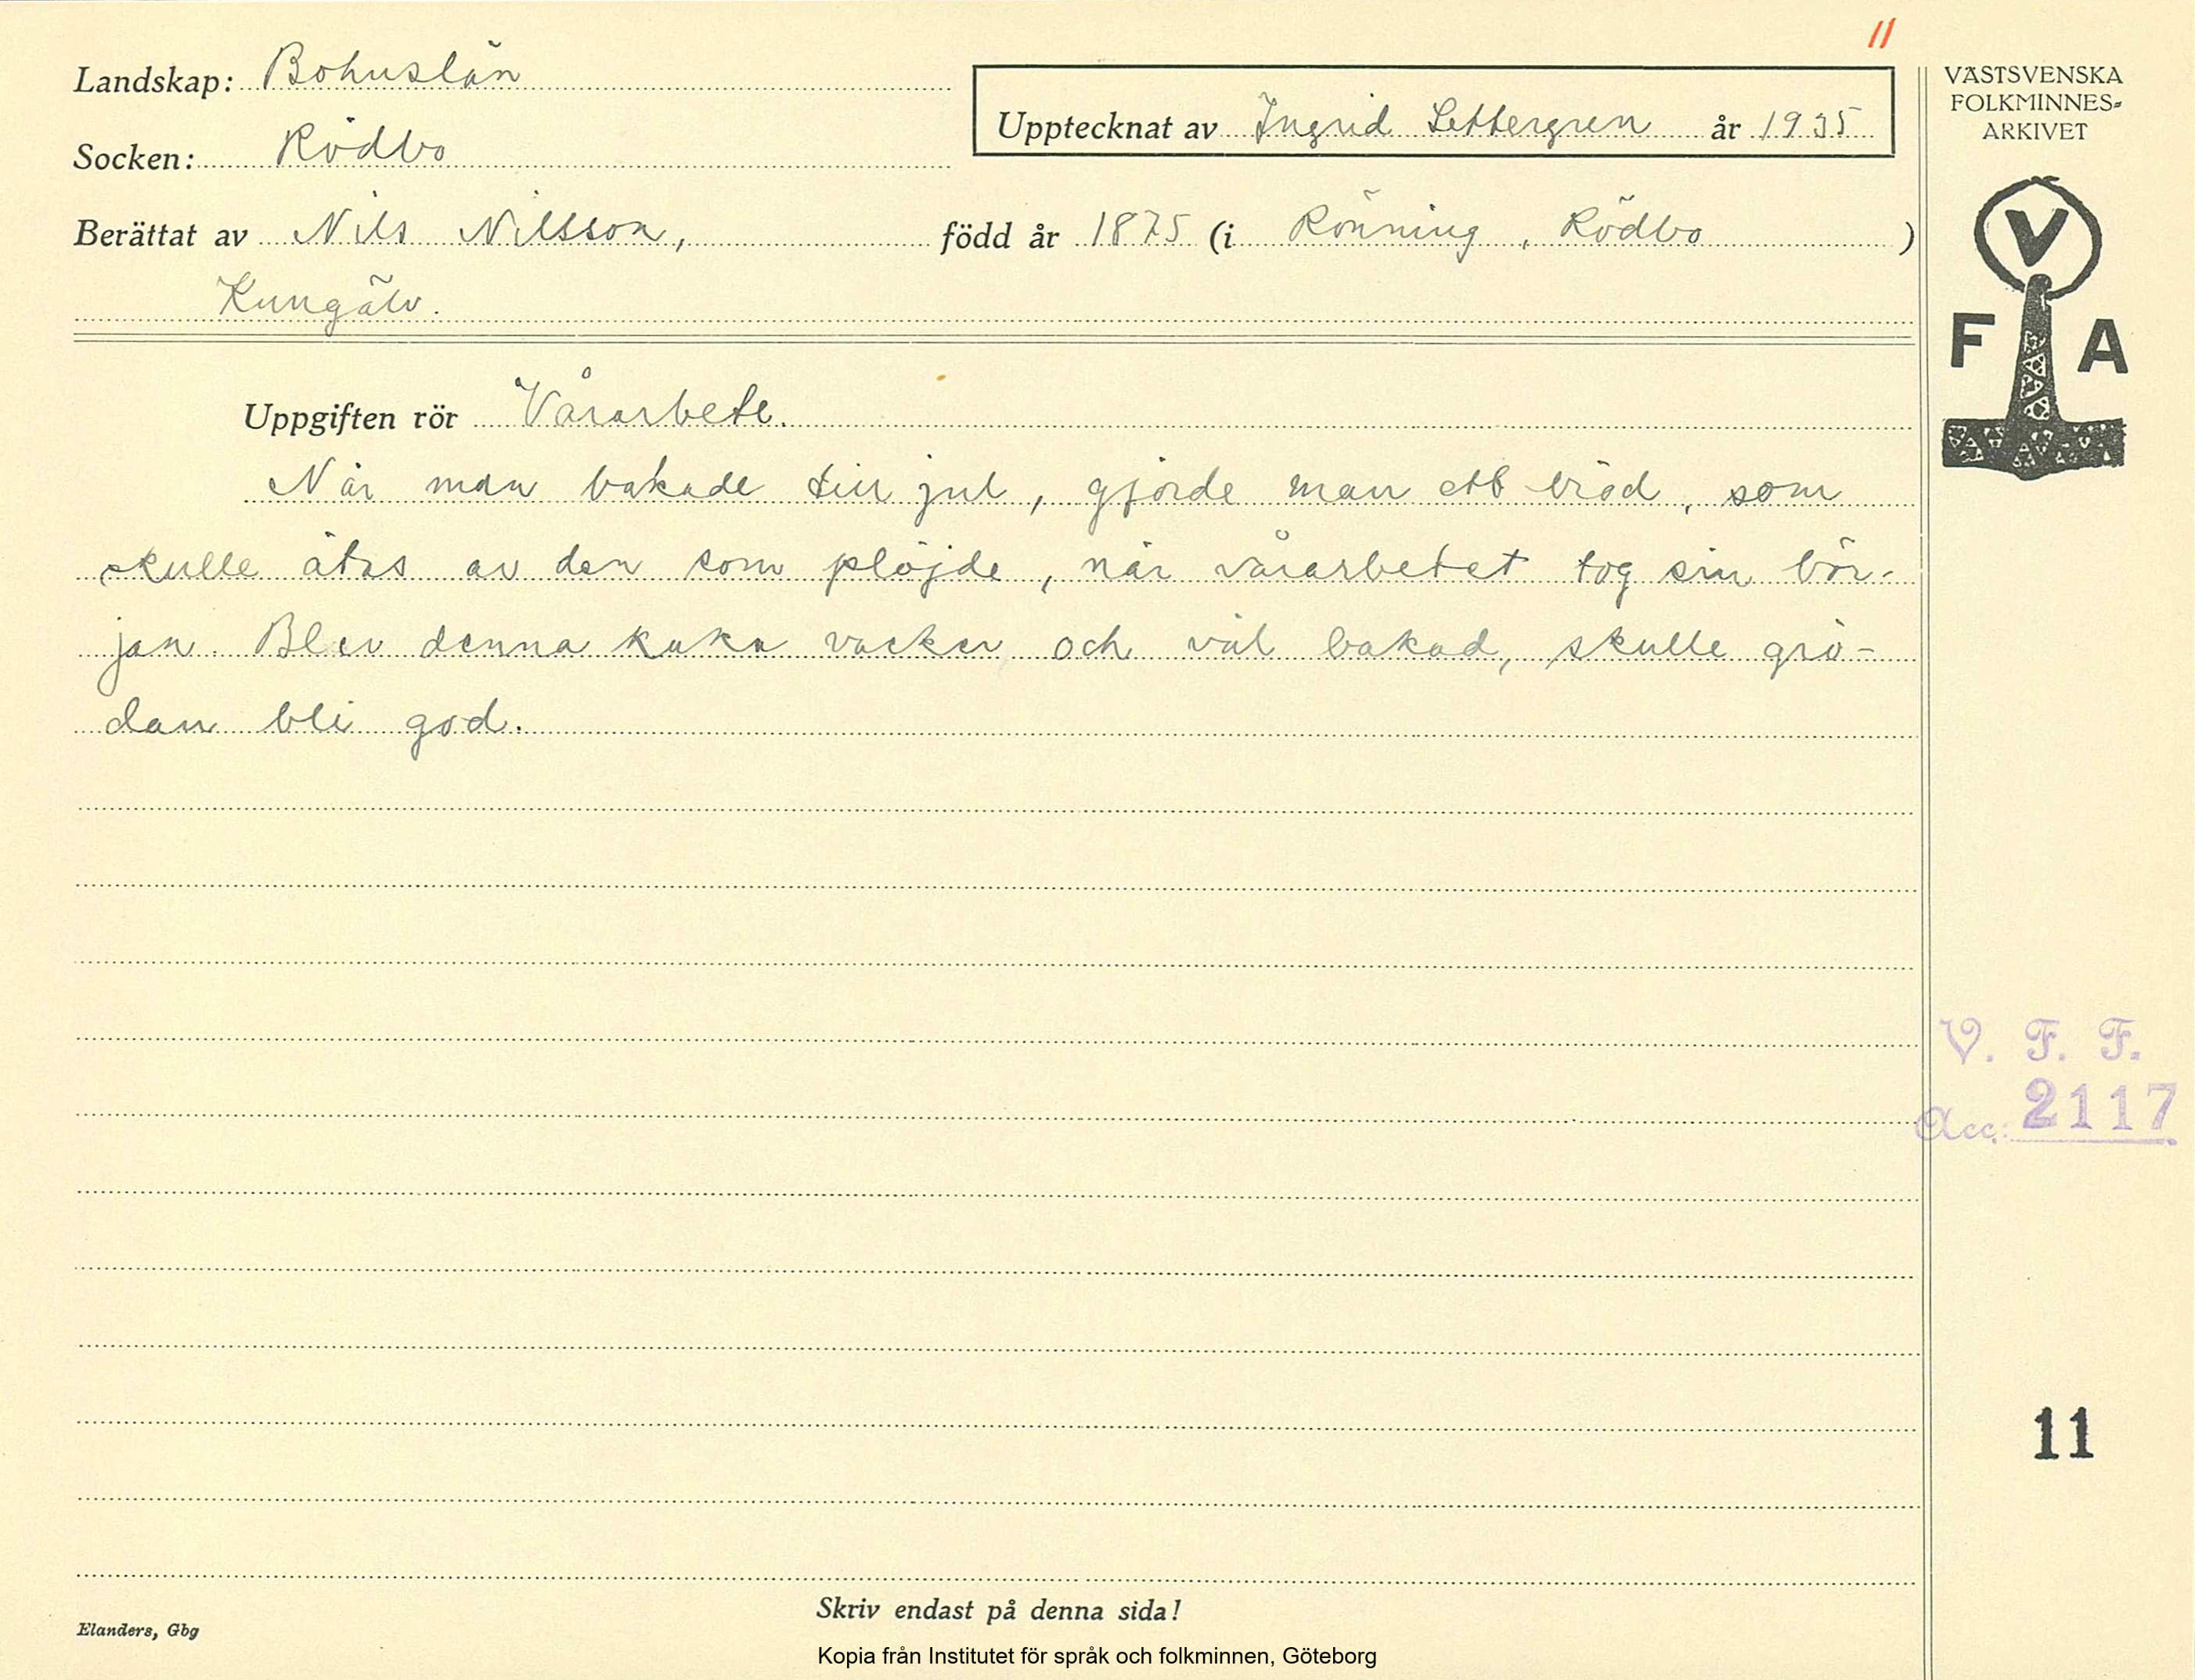 11
Landskap: Bohuslän
Socken: Rödbo
Upptecknat av Ingrid Settergren år 1935
Berättat av Nils Nilsson, född år 1875 (i Rönning, Rödbo)
Kungälv.
VÄSTSVENSKA
FOLKMINNES-
ARKIVET
V
F A
Uppgiften rör Vårarbete.
När man bakade till jul, gjorde man ett bröd, som
skulle ätas av den som plöjde, när vårarbetet tog sin bör-
jan. Blev denna kaka vacker och väl bakad, skulle grö-
dan bli god.
V. F. F.
Acc. 2117
11
Skriv endast på denna sida!
Elanders, Gbg
Kopia från Institutet för språk och folkminnen, Göteborg